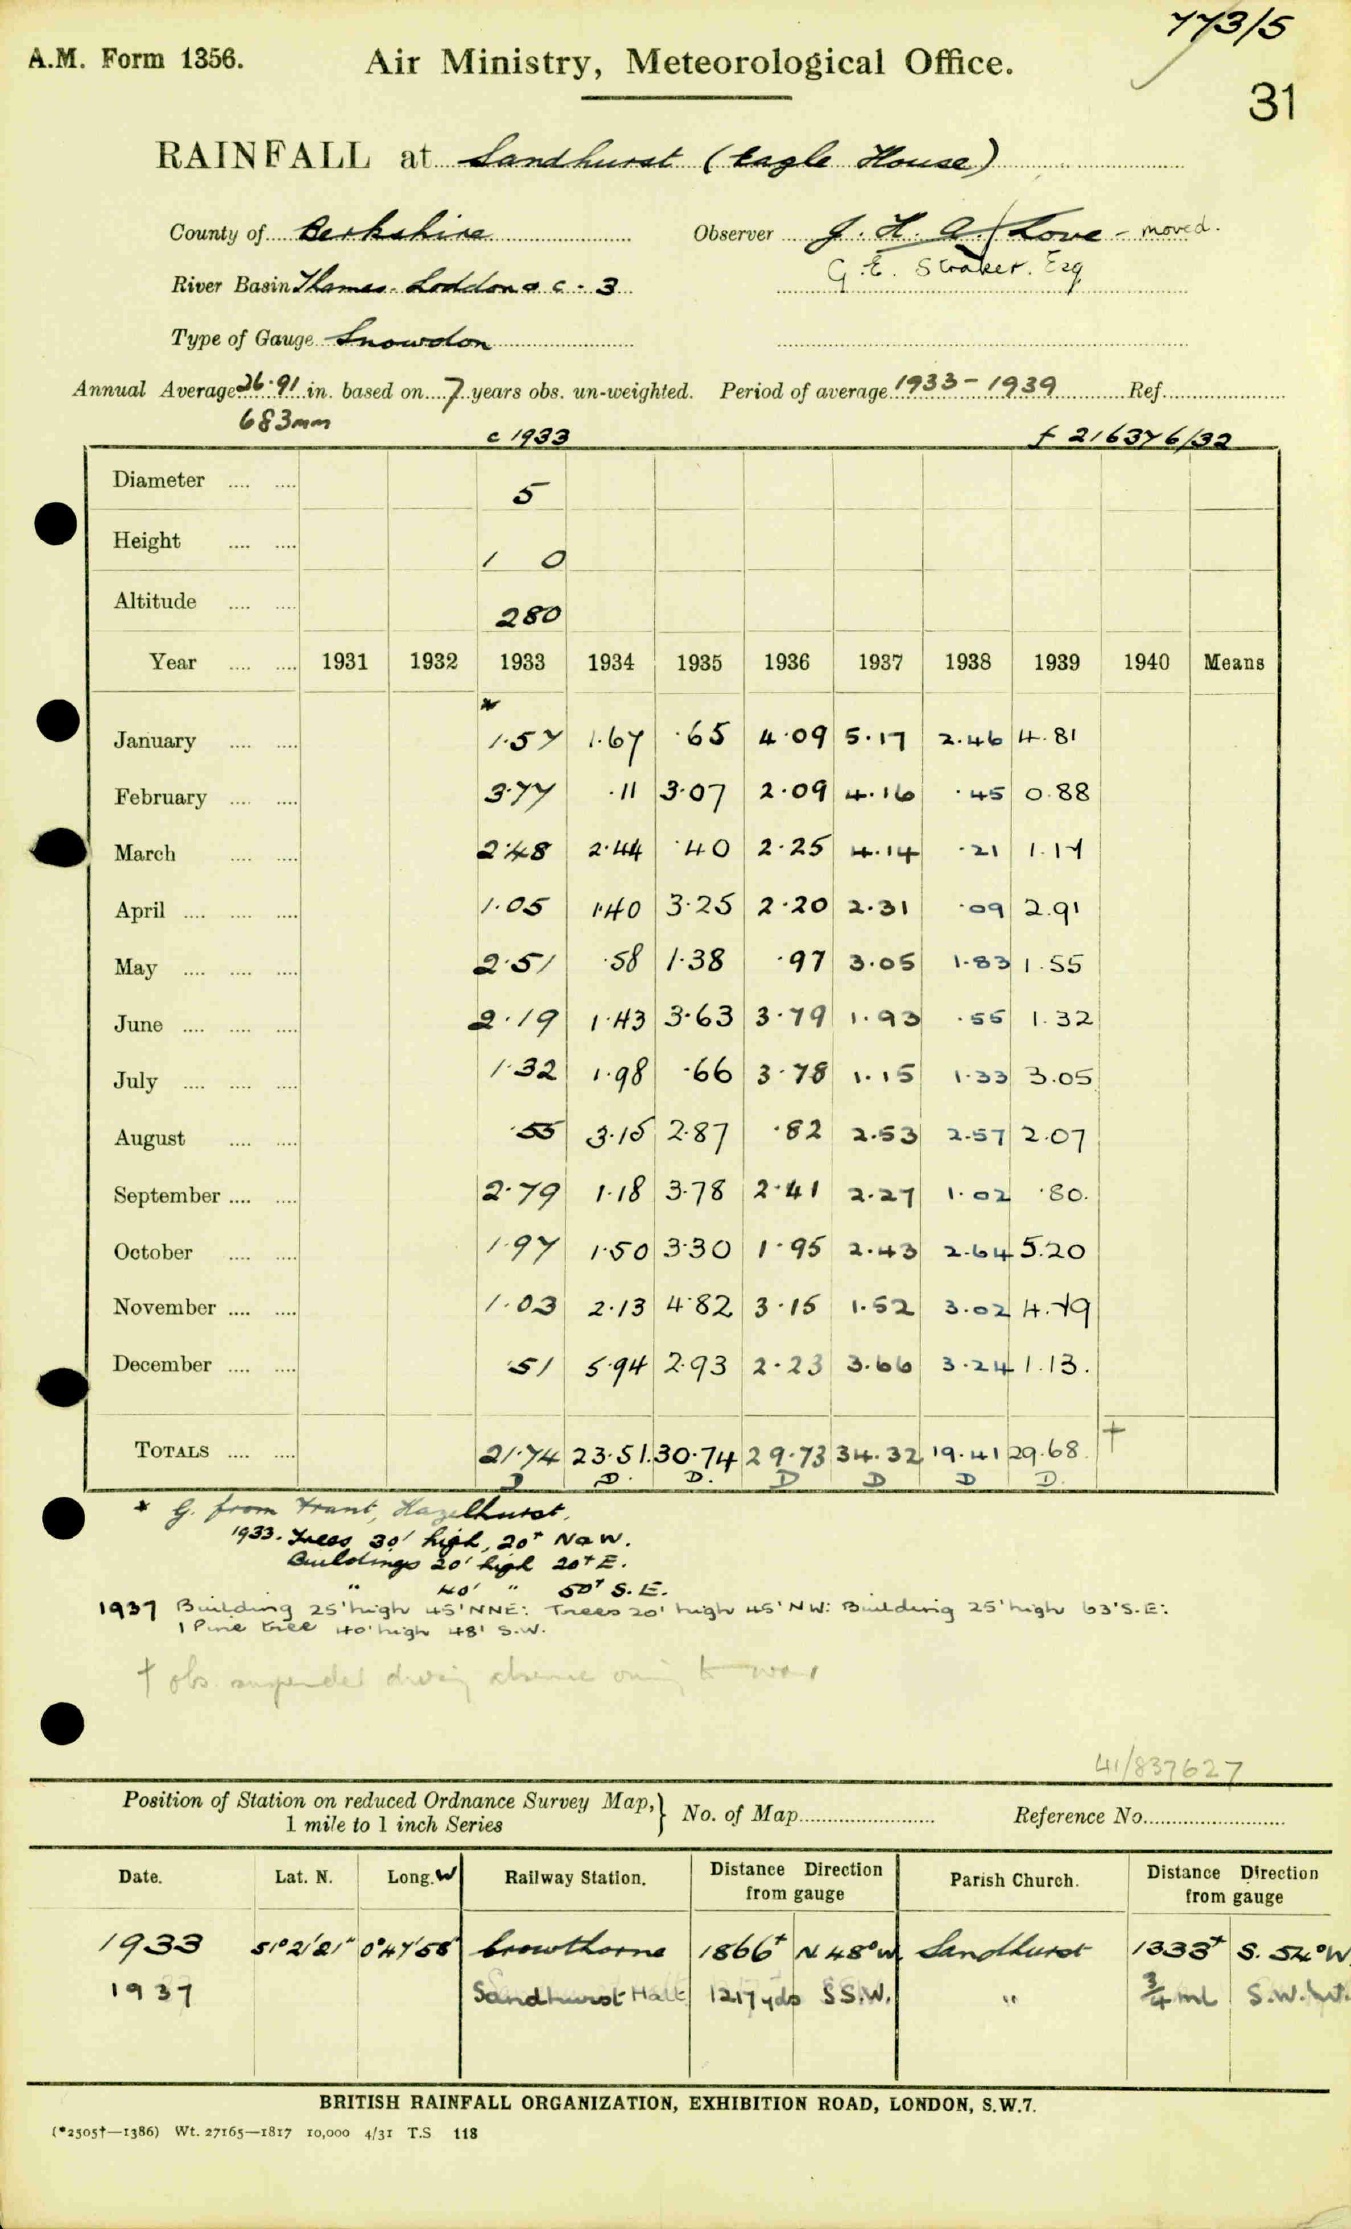 773/5
A.M. Form 1356. Air Ministry, Meteorological Office.
31
RAINFALL at Sandhurst (Eagle House)
County of Berkshire Observer J. H. A. Love - moved.
River Basin Thames - Loddon & c - 3 G. E. Straker. Esq
Type of Gauge Snowdon
Annual Average 26.91 in. based on 7 years obs. un-weighted. Period of average 1933 - 1939 Ref.
683mm c 1933 f 216376/32
Diameter 5
Height 1 0
Altitude 280
Year 1931 1932 1933 1934 1935 1936 1937 1938 1939 1940 Means
*
January 1.57 1.67 .65 4.09 5.17 2.46 4.81
February 3.77 .11 3.07 2.09 4.16 .45 0.88
March 2.48 2.44 .40 2.25 4.14 .21 1.17
April 1.05 1.40 3.25 2.20 2.31 .09 2.91
May 2.51 .58 1.38 .97 3.05 1.83 1.55
June 2.19 1.43 3.63 3.79 1.93 .55 1.32
July 1.32 1.98 .66 3.78 1.15 1.33 3.05
August .55 3.15 2.87 .82 2.53 2.57 2.07
September 2.79 1.18 3.78 2.41 2.27 1.02 .80.
October 1.97 1.50 3.30 1.95 2.43 2.64 5.20
November 1.03 2.13 4.82 3.15 1.52 3.02 4.79
December .51 5.94 2.93 2.23 3.66 3.24 1.13.
TOTALS 21.74 23.51. 30.74 29.73 34.32 19.41 29.68 †
D D. D. D D D D.
* G. from Frant, Hazelhurst.
1933. Trees 30' high, 20+ N & W.
Buildings 20' high 20+ E.
" 40' " 50+ S. E.
1937 Building 25' high 45' NNE: Trees 20' high 45' NW: Building 25' high 63' S.E:
1 Pine tree 40' high 48' S.W.
† obs. suspended during absence owing to war
41/837627
Position of Station on reduced Ordnance Survey Map, 1 mile to 1 inch Series } No. of Map Reference No.
Date. Lat. N. Long. W Railway Station. Distance Direction from gauge Parish Church. Distance Direction from gauge
1933 51° 21' 21" 0° 47' 58" Crowthorne 1866+ N 48° W. Sandhurst 1333+ S. 54° W
1937 Sandhurst Halt 1217 yds S S.W. " 3/4 ml S.W.
BRITISH RAINFALL ORGANIZATION, EXHIBITION ROAD, LONDON, S.W.7.
(*2505†—1386) Wt. 27165—1817 10,000 4/31 T.S 118